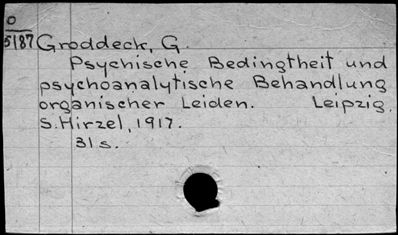 O
5187 Groddeck, G.
Psychische Bedingtheit und
psychoanalytische Behandlung
organischer Leiden. Leipzig,
S. Hirzel, 1917.
31 s.